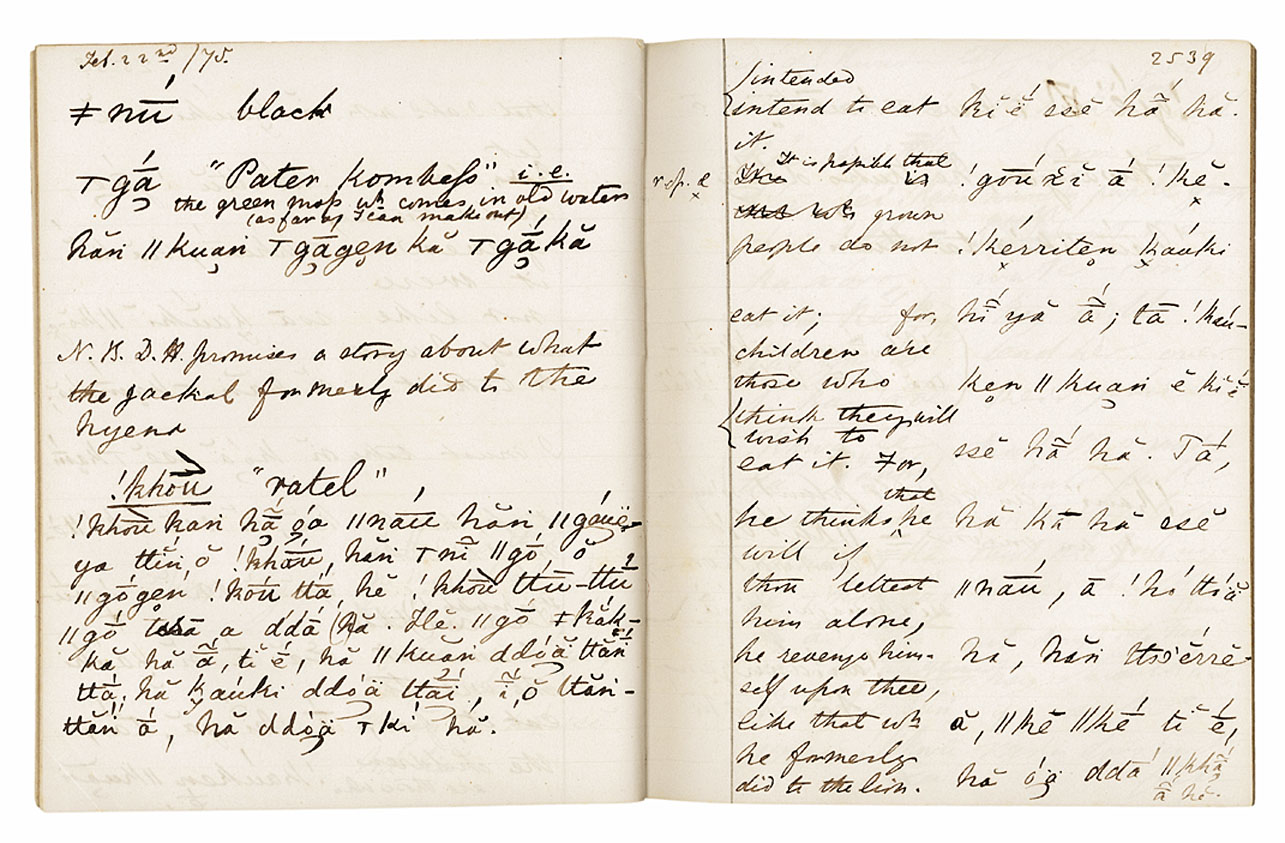 Feb. 22nd /75.
ǂnū́ black
⊤gá̄ "Pater kombess" i.e.
the green moss wh comes in old waters
(as far as I can make out)
hăn ǁkuan ⊤gāgen kă ⊤gá̄ kă
N. B. D. H. promises a story about what
the jackal formerly did to the
hyena
!khōu "ratel"
!khōu kan hā̃ óa ǁnāū hăn
ya ttĭn ŏ !khōū, hăn ⊤nĩ ǁgó ŏ
ǁgógen !kóu tta, hĕ !khōu ttū-ttū
ǁgó a ddá hă. Hĕ ǁgó ǂkák-
kă hă ā̃, tĭ é, hă ǁkuan ddóä ttăn
ttá; hă káuki ddóä ttăĭ, ĭ, ŏ ttăn-
ttăn á, hă ddóä ⊤kí hă.
2539
intended
intend to eat kĭ ĕ́ ssĕ hā̃ hă.
it.
It is possible that
!góu x̆ĭ ā́ !kĕ-
grown
people do not !kérriten káuki
eat it; for, hĩ́ yă ā̃́; tā !káu-
children are
those who ken ǁkuan ĕ kĭ ĕ́
think they will
wish to ssĕ hā̃́ hă. Tá,
eat it. For,
that
he thinks he hă kā hă ssĕ
will if
thou lettest ǁnāū, ă !hó ttóä
him alone,
he revenge him- hă, hăn ttwérrĕ-
self upon thee,
like that wh ă, ǁkĕ ǁkĕ́ tĭ é,
he formerly
did to the lion. hă óä ddá ǁkhā̃
ā̃ hĕ.